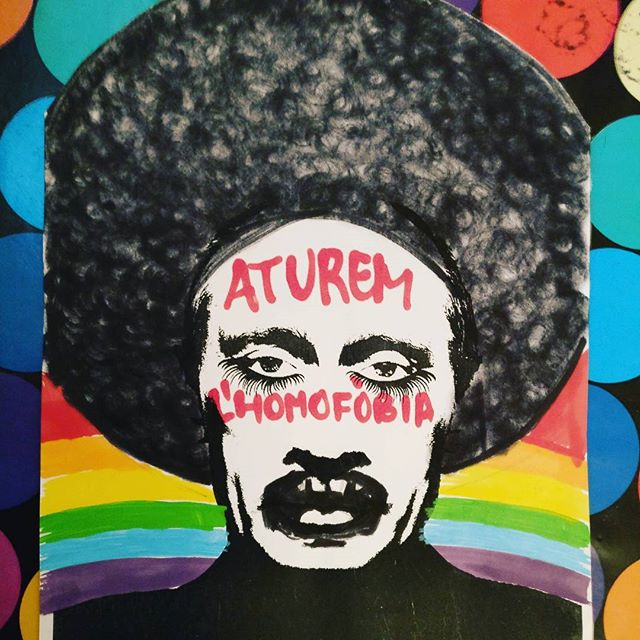 ATUREM
L'HOMOFOBIA